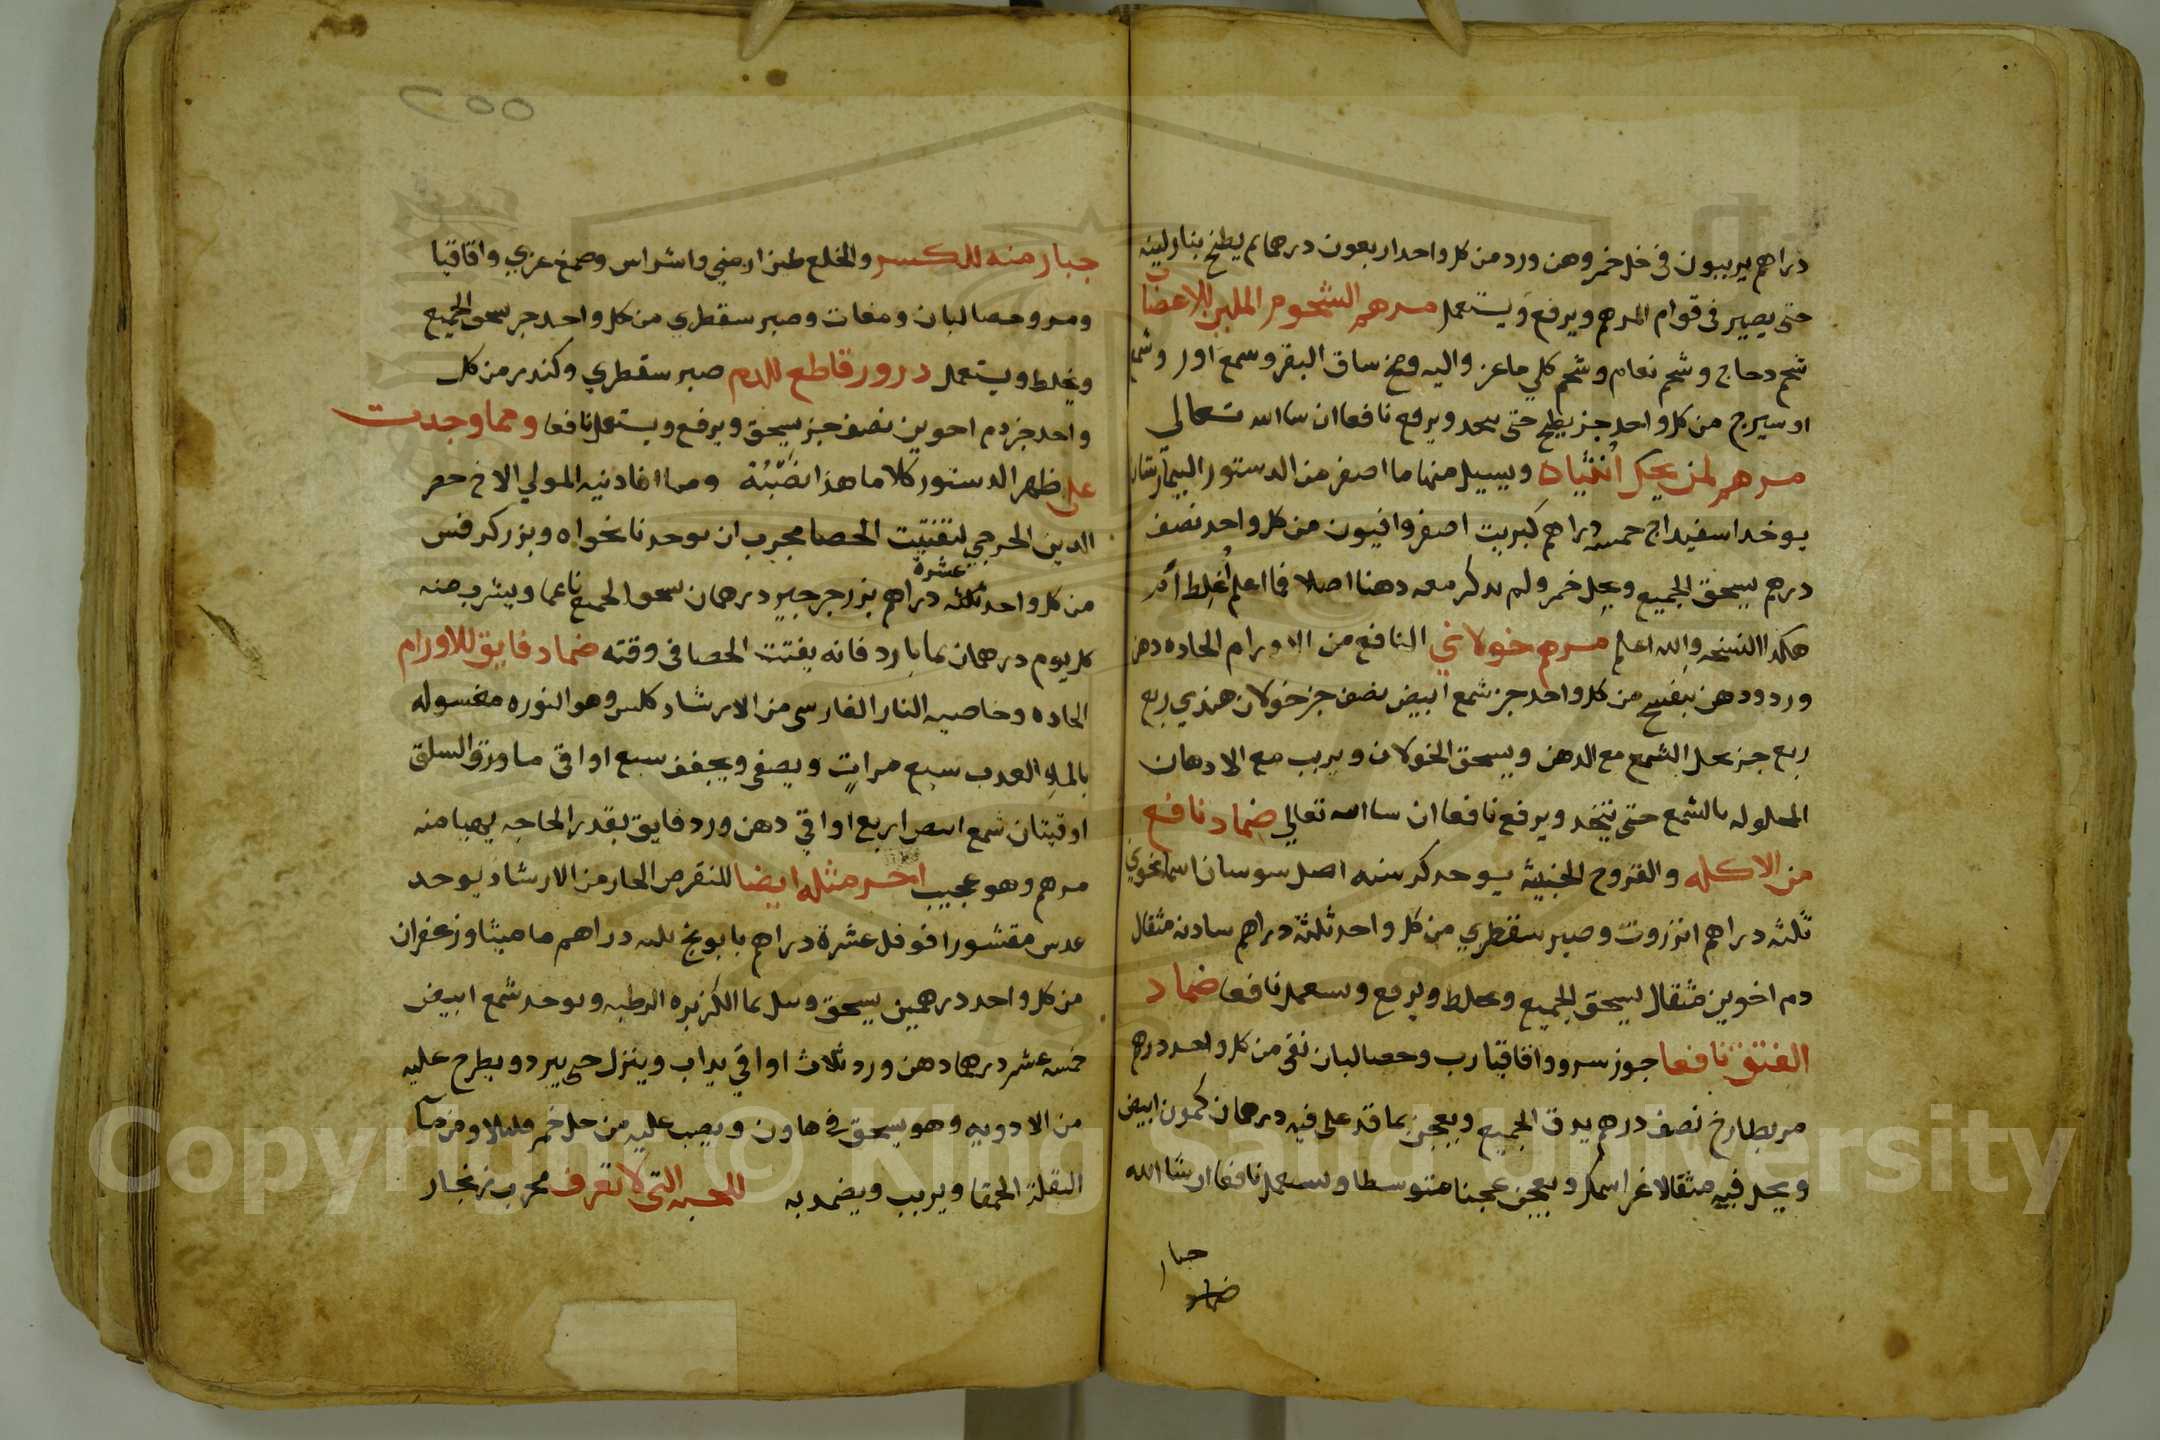 دراهم يربيون في خل خمر وهن ورد من كل واحد اربعون درهما ثم يطبخ بنار لينه
حتى يصير في قوام المرهم ويرفع ويستعمل مرهم الشحوم الملين للاعضاب
شحم دجاج وشحم نعام وشحم كلي ماعز واليه ومخ ساق البقر وسمع اور وشمع
او سيرج من كل واحد جز يطبخ حتى سحد ويرفع نافعا ان سا الله تعالى
مرهم لمن يحك انثياه ويسيل منها ما اصفر من الدستور البيمارستان
يوخد اسفيداج خمسه دراهم كبريت اصفر وافيون من كل واحد نصف
درهم يسحق الجميع ويحل خمر ولم يدكر معه دهنا اصلا فما اعلم أغلط أم
هكدا النسخه والله اعلم مرهم خولاني النافع من الاورام الحاده دهن
ورد ودهن بنفسج من كل واحد جز شمع ابيض نصف جز خولان هندي ربع
ربع جز يحل الشمع مع الدهن ويسحق الخولان ويربب مع الادهان
المحلوله بالشمع حتى يتحد ويرفع نافعا ان سا الله تعالي ضماد نافع
من الاكله والقروح الخبيثة يوحد كرسنه اصل سوسان اسمانجوني
ثلثه دراهم انزروت وصبر سقطري من كل واحد ثلثة دراهم سادنه مثقال
دم اخوين مثقال يسحق الجميع ويخلط ويرفع ويستعمل نافعا ضماد
الفتق نافعا جوز سرو واقاقيا رب وحصا لبان نقي من كل واحد درهم
مر بطارخ نصف درهم يدق الجميع ويعجن بما قد على فيه درهمان كمون ابيض
ويحل فيه مثقالا غرا سمك ويعجن عجنا متوسطا ويستعمل نافعا ان شا الله
جبار
ضماد
٢٥٥
جبار منه للكسر والخلع طين ارمني واشراس وصمغ عربي واقاقيا
ومر وحصا لبان ومغات وصبر سقطري من كل واحد جز يسحق الجميع
ويخلط ويستعمل درور قاطع للدم صبر سقطري وكندر من كل
واحد جز دم اخوين نصف جز يسحق ويرفع ويستعمل نافعا ومما وجدت
على ظهر الدستور كلاما هذا نصه ومما افادنيه المولي الاخ حصر
الدين الحرجي لتفتيت الحصا مجرب ان يوحد نانخواه وبزر كرفس
من كل واحد ثلثه عشرة دراهم بزر جرجير درهمان يسحق الجميع ناعما ويشرب منه
كل يوم درهمان بما بارد فانه يفتت الحصا في وقته ضماد فايق للاورام
الحاده وخاصيه النار الفارسي من الارشاد كلس وهو النوره مغسوله
بالماء العدب سبع مرات ويصفى ويجفف سبع اواقي ما ورق السلق
اوقيتان شمع ابيض اربع اواقي دهن ورد فايق بقدر الحاجه يهيا منه
مرهم وهو عجيب اخر مثله ايضا للنقرس الحار من الارشاد يوحد
عدس مقشور افوفل عشرة دراهم بابونج ثلثه دراهم ماميثا وزعفران
من كل واحد درهمين يسحق وسل بما الكزبره الرطبه ويوحد شمع ابيض
خمسه عشر درهما دهن ورد ثلاث اواقي يداب وينزل حتي يبرد ويطرح عليه
من الادويه وهو يسحق في هاون ويصب عليه من خل خمر قليلا ومن ما
البقلة الحمقا ويربب ويضمد به للحبه التي لا تعرف مجرب زنجار
Copyright © King Saud University